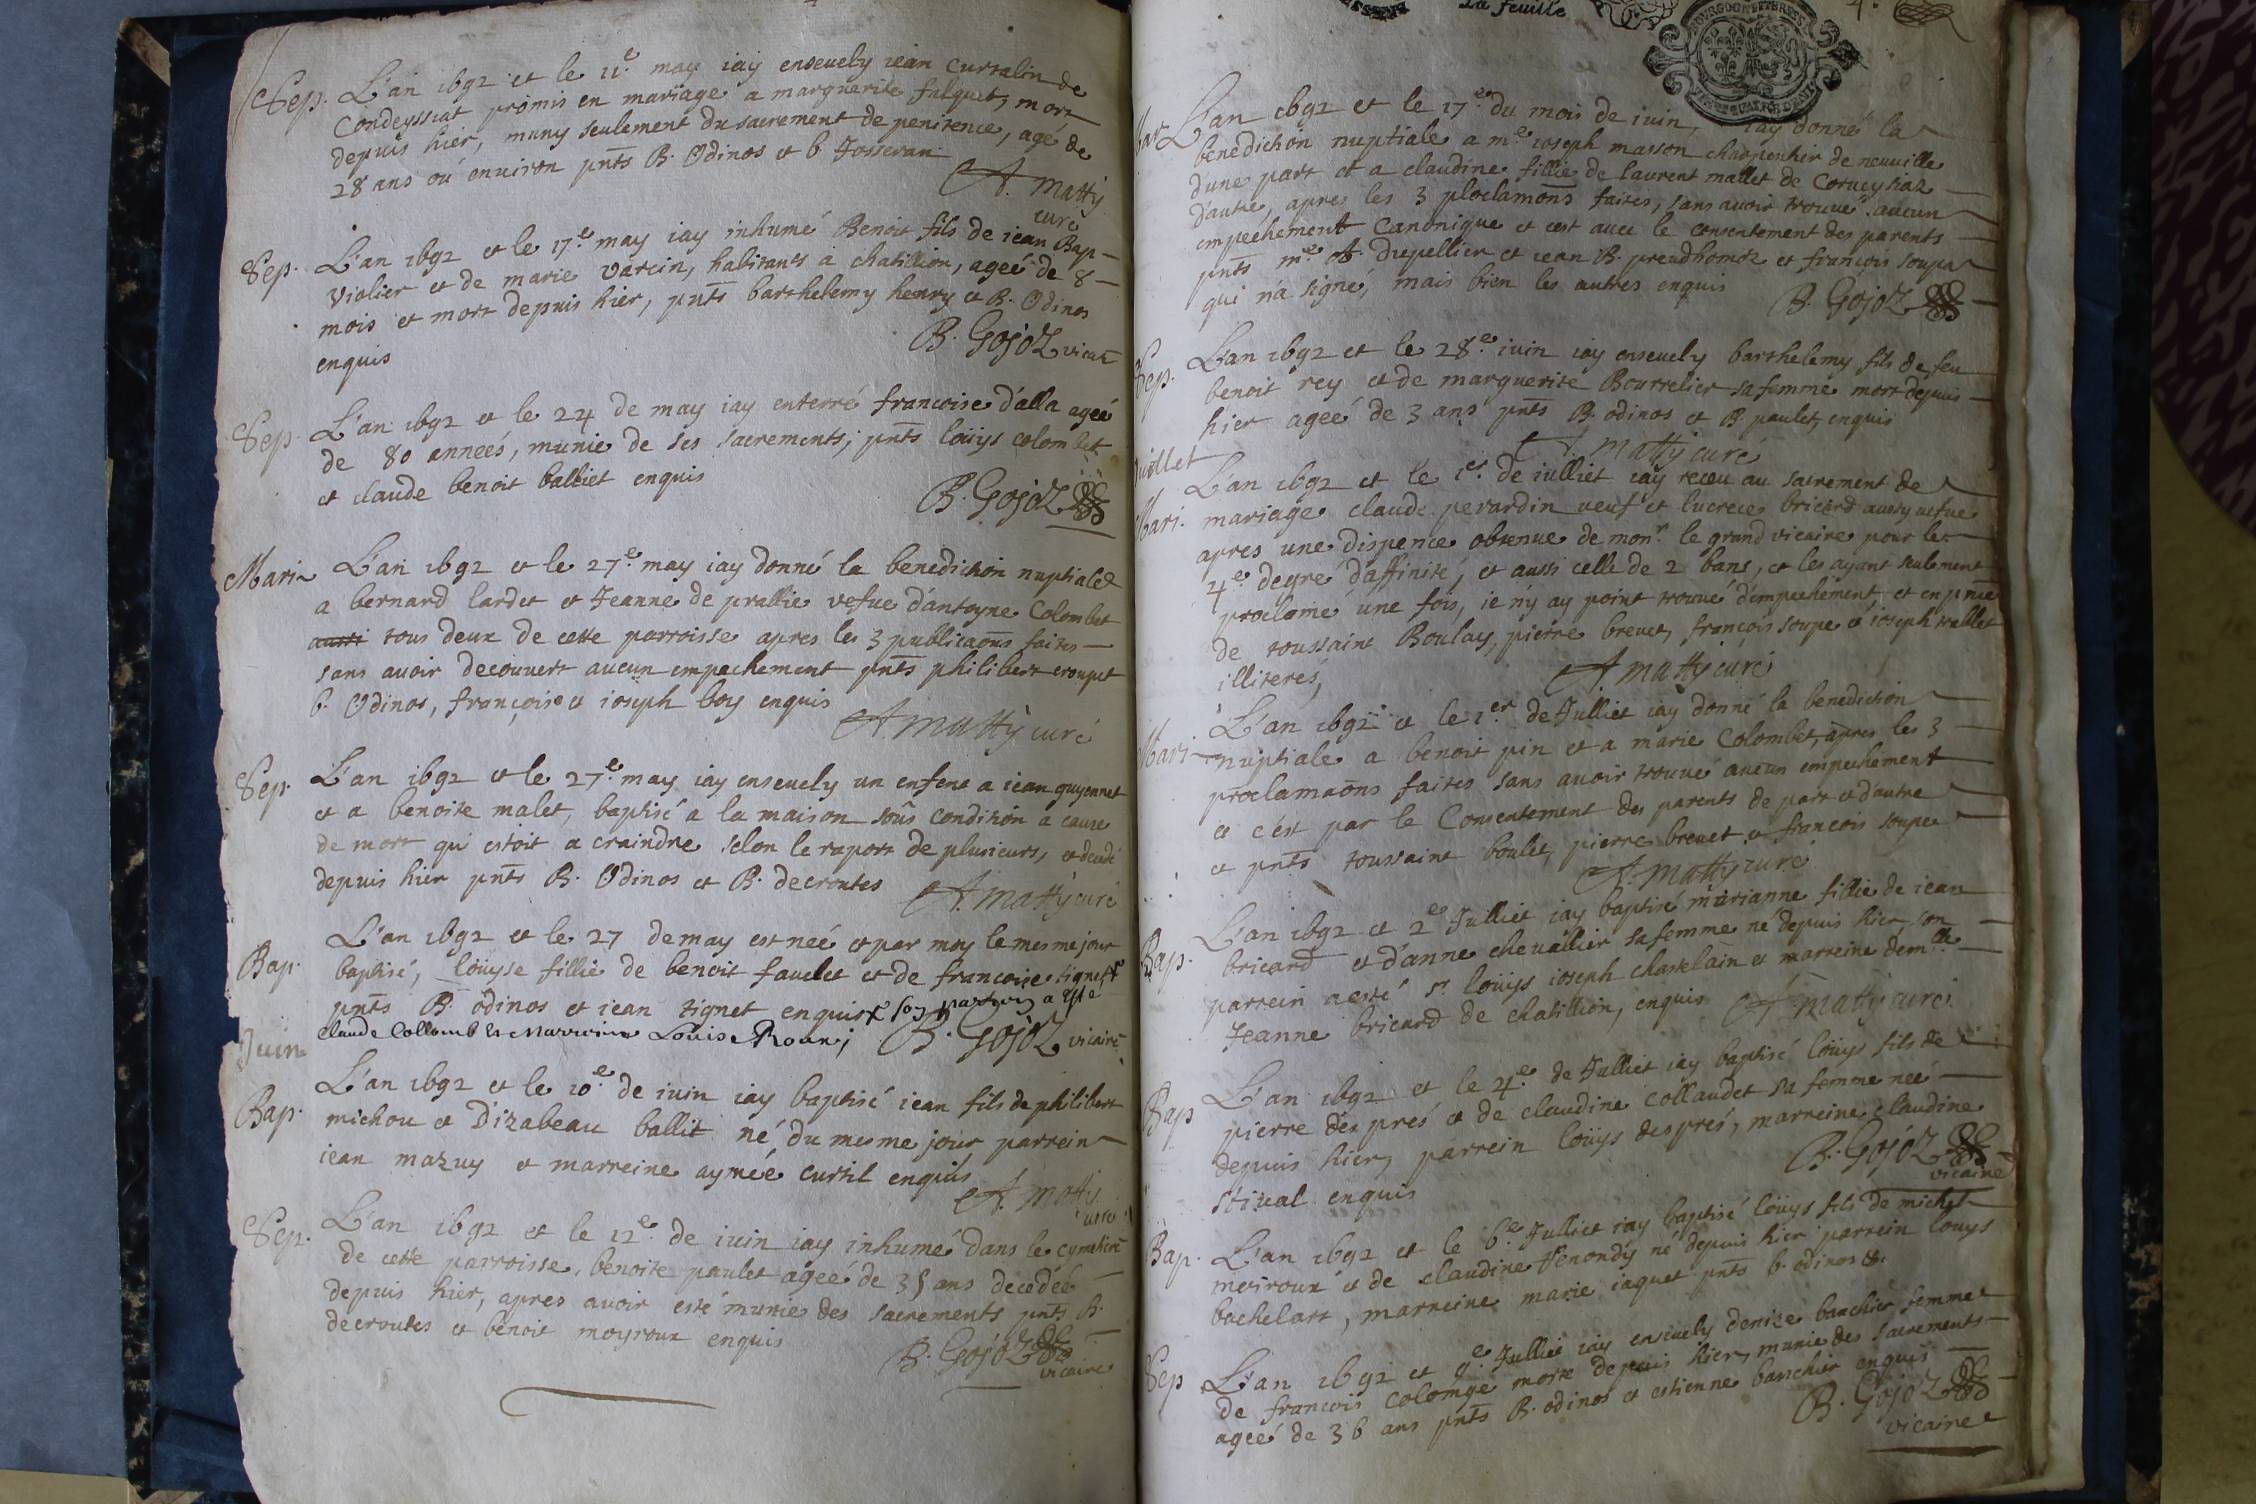 Sep. L'an 1692 et le 11.e may iay enseuely iean Curtalin de
Condeyssiat promis en mariage a marguerite fulquet, mort
depuis hier, muny seulement du sacrement de penitence, agé de
28 ans oú enuiron pnts B. Odinos et b Josseran
A. Matty
curé
Sep. L'an 1692 et le 17.e may iay inhumé Benoit fils de iean Bap-
Violier et de marie Varcin, habitants à chatillion, ageé de 8
mois et mort depuis hier, pnts barthelemy henry et B. Odinos
enquis
B. GojoZ vicair
Sep. L'an 1692 et le 24 de may iay enterré francoise d'alla ageé
de 80 anneés, munie de ses sacrements, pnts loüys colombet
et claude benoit balliet enquis
B. GojoZ
Mari L'an 1692 et le 27.e may iay donné la benediction nuptiale
a bernard lardet et Jeanne de prallie vefue d'antoyne Colombet
aussi tous deux de cette parroisse apres les 3 publicaons faites
sans auoir decouuert aucun empechement pnts philibert croupet
b. Odinos, françoise et ioseph boy enquis
A Matty curé
Sep. L'an 1692 et le 27.e may iay enseuely un enfent a iean guyennet
et a benoite malet, baptisé a la maison soûs condition a cause
de mort qui estoit a craindre selon le raport de plusieurs, et decedé
depuis hier pnts B. Odinos et B. decroutes
A. Matty curé
Bap. L'an 1692 et le 27 de may est neé et par moy le mesme jour
baptisé, loüyse fillie de benoit fauelet et de francoise tignet
pnts B. odinos et iean tignet enquis x son parrin a esté
claude Collomb et Marrine Louise Roux;
B. GojoZ vicaire
Juin
Bap. L'an 1692 et le 10.e de iuin iay baptisé iean fils de philibert
michou et d'izabeau ballit né du mesme jour parrein
iean mazuy et marreine ayméé curtil enquis
A. Matty
curé
Sep. L'an 1692 et le 12.e de iuin iay inhumé dans le cymetire
de cette parroisse, benoite paulet ageé de 35 ans decedéé
depuis hier, apres auoir esté munie des sacrements pnts B.
decroutes et benoit moyroux enquis
B. GojoZ
vicaire
la feuille
4.
Mar L'an 1692 et le 17.e du mois de iuin, iay donné la
benediction nuptiale a m.e ioseph masson charpentier de neuuille
d'une part et a claudine fillie de laurent mallet de
d'autre, apres les 3 ploclamons faites, sans auoir trouué aucun
empechement Canonique et cest auec le consentement des parents
pnts m.e A. Dupellier et iean B. preudhomoz et francois soupe
qui n'a signé, mais bien les autres enquis
B. GojoZ
Sep. L'an 1692 et le 28.e iuin iay enseuely barthelemy fils de feu
benoit rey et de marguerite Bourrelier sa femme mort depuis
hier ageé de 3 ans pnts B. odinos et B. paulet, enquis
A. Matty curé
Juillet
Mari. L'an 1692 et le 1er. de iulliet iay receu au sacrement de
mariage claude perardin ueuf et lucrece bricard aussy uefue
apres une dispence obtenue de monr. le grand vicaire pour le
4.e degré d'affinité, et aussi celle de 2 bans, et les ayant seulement
proclamé une fois, ie n'y ay point trouué d'empechement, et en pnce
de toussaint Boulay, pierre breuet, francois soupe et ioseph mallet
illiterés,
A Matty curé
Mari L'an 1692 et le 1.er de Julliet iay donné la benediction
nuptiale a benoit pin et a marie Colombet, apres les 3
proclamaons faites sans auoir trouué aucun empechement
et c'est par le Consentement des parents de part et d'autre
et pnts toussaint boulet, pierre breuet et francois soupe
A. Matty curé
Bap. L'an 1692 et 2.e Julliet iay baptisé marianne fillie de iean
bricard et d'anne cheuallier sa femme né depuis hier son
parrein a esté sr. loüys ioseph chastelain et marreine demlle
Jeanne bricard de chatillion, enquis
A Matty curé
Bap L'an 1692 et le 4.e de Julliet iay baptisé loüys fils de
pierre des prés et de claudine Collaudet sa femme neé
depuis hier, parrein loüys després, marreine claudine
stiual enquis
B. GojoZ
vicaire
Bap. L'an 1692 et le 6.e Julliet iay baptisé loüys fils de michel
moiroux et de claudine Venondy né depuis hier parrein louys
bachelart, marreine marie iaquet pnts b. odinos &.
Sep L'an 1692 et 9.e Julliet iay enseuely denise banchier femme
de francois colomge morte depuis hier, munie des sacrements
ageé de 36 ans pnts B. odinos et estienne banchier enquis
B. GojoZ
vicaire